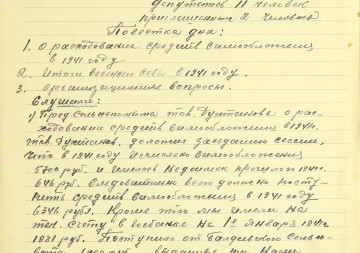 депутатов 11 человек
приглашенных 2 человека
Повестка дня:
1. О расходовании средств самообложения
в 1941 году
2. Итоги весеннего сева в 1941 году.
3. Организационные вопросы.
Слушали:
1) Пред. сельисполкома тов. о рас-
ходовании средств самообложения в 1941г.
тов. доложил заседанию сессии,
что в 1941 году исчислено самообложения
5700 руб и имелось недоимок прошлого 1940г.
646 руб. Следовательно всего должно посту-
пить средств самообложения в 1941 году
6346 руб. Кроме того мы имели на
тек. счету в госбанке на 1е января 1941г
1821 руб. Поступило от сельсо-
вета